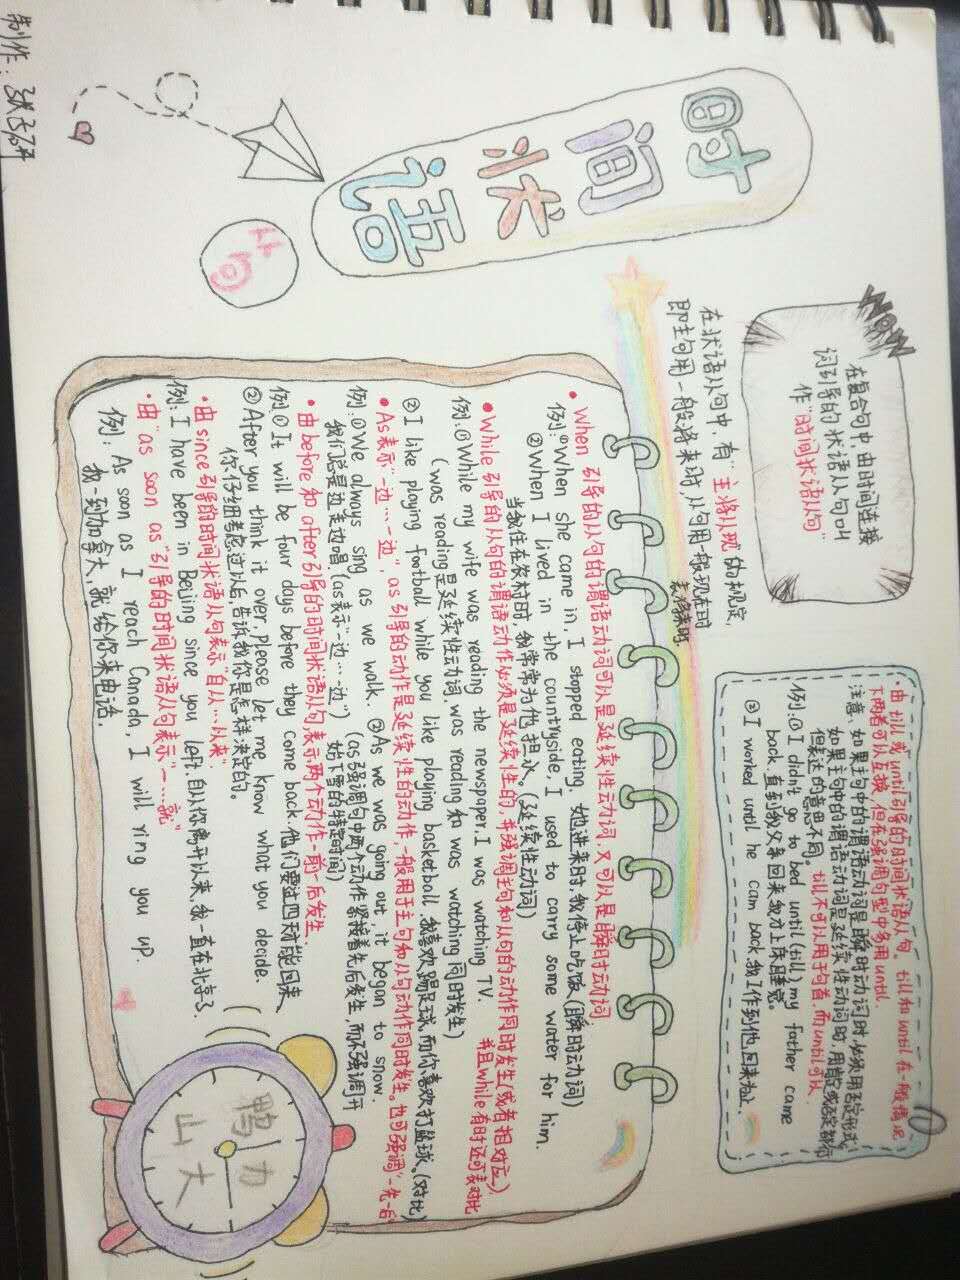 时间状语
制作：
New
在复合句中由时间连接
词引导的状语从句叫
作"时间状语从句"
在状语从句中，有"主将从现"的规定，
即主句用一般将来时，从句用一般现在时
表将来时
·由 till 或 until 引导的时间状语从句。till 和 until 在一般情况
下两者可以互换，但在强调句型中多用 until.
注意：如果主句中的谓语动词是瞬时动词时，必须用否定形式;
如果主句中的谓语动词是延续性动词时，用肯定或否定都行
但表达的意思不同。till不可以用于句首，而until可以.
例:① I didn't go to bed until (till) my father came
back. 直到我父亲回来我才上床睡觉.
② I worked until he cam back.我工作到他回来为止.
·When 引导的从句的谓语动词可以是延续性动词，又可以是瞬时动词
例:①When she came in, I stopped eating. 她进来时，我停止吃饭(瞬时动词)
②When I lived in the countryside, I used to carry some water for him.
当我住在农村时，我常常为他担水。(延续性动词)
·While引导的从句的谓语动作必须是延续性的，并强调主句和从句的动作同时发生(或者相对应)
并且while有时还可表对比
例:①While my wife was reading the newspaper, I was watching TV.
(was reading是延续性动词，was reading和 was watching同时发生)
② I like playing football while you like playing basketball. 我喜欢踢足球，而你喜欢打篮球.(对比)
·As表示"一边…一边"，as引导的动作是延续性的动作，一般用于主句和从句动作同时发生。也可强调"一先一后
例:①We always sing as we walk. ②As we was going out, it began to snow.
我们总是边走边唱(as表示"一边…一边") (as强调句中两个动作紧接着先后发生，而不强调开
始下雪的特定时间)
·由 before 和 after 引导的时间状语从句表示两个动作一前一后发生.
例① It will be four days before they come back.他们要过四天才能回来
② After you think it over, please let me know what you decide.
你仔细考虑过以后，告诉我你是怎样决定的。
·由 since引导的时间状语从句表示"自从…以来"
例: I have been in Beijing since you left. 自从你离开以来，我一直在北京了
·由"as soon as"引导的时间状语从句表示"一…就"
例: As soon as I reach Canada, I will ring you up.
我一到加拿大，就给你来电话.
鸭力
山大